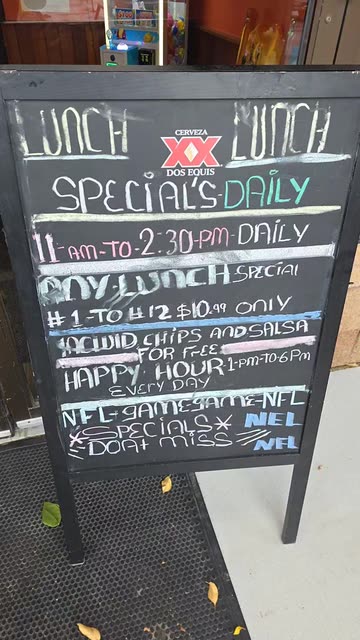 LUNCH LUNCH
CERVEZA
XX
DOS EQUIS
SPECIAL'S-DAILY
11-AM-TO-2:30-PM-DAILY
ANY-LUNCH SPECIAL
#1-TO #12 $10.99 ONLY
CHIPS AND SALSA
FOR FREE
HAPPY HOUR 1-PM-TO-6PM
EVERY DAY
NFL-GAMEGAME-NFL
*SPECIALS* NFL
DOAT MISS NFL